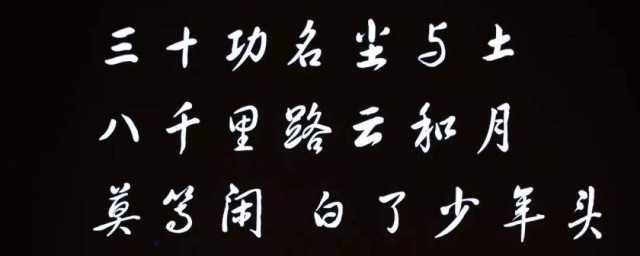 三十功名尘与土
八千里路云和月
莫等闲 白了少年头